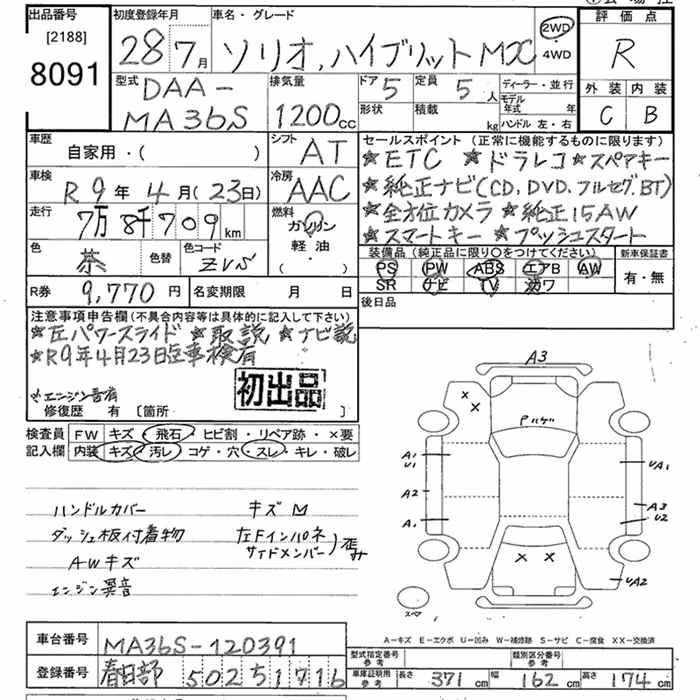 出品番号
[2188]
8091
初度登録年月
28 7月
車名・グレード
ソリオ,ハイブリットMX
2WD
・
4WD
評価点
R
外装 内装
C B
型式
DAA-
MA36S
排気量
1200cc
ドア 5
定員 5人
形状
積載 kg
ディーラー・並行
モデル年式 年
ハンドル 左・右
車歴
自家用・( )
シフト
AT
車検
R9年4月(23日)
冷房
AAC
走行
7万8千709km
燃料
ガソリン
軽油
( ・ )
色
茶
色替
色コード
ZVS
R券 9,770円
名変期限 月 日
セールスポイント(正常に機能するものに限ります)
★ETC ★ドラレコ ★スペアキー
★純正ナビ(CD,DVD,フルセグ,BT)
★全方位カメラ ★純正15AW
★スマートキー ★プッシュスタート
装備品(純正品に限り○をつけてください)
PS PW ABS エアB AW
SR ナビ TV カワ
新車保証書
有・無
後日品
注意事項申告欄(不具合内容等は具体的に記入して下さい)
★左パワースライド ★取説 ★ナビ説
★R9年4月23日迄車検有
※エンジン音有
初出品
修復歴 有 [箇所 ]
検査員
記入欄
FW キズ・飛石・ヒビ割・リペア跡・×要
内装 キズ・汚レ・コゲ・穴・スレ・キレ・破レ
ハンドルカバー キズM
ダッシュ板付着物 左Fインパネ
サイドメンバー)歪み
AWキズ
エンジン異音
A3
Pルゲ
A1
U1
A2
A1
UA1
A3
U2
UA2
スペア
A−キズ E−エクボ U−凹み W−補修跡 S−サビ C−腐食 XX−交換済
車台番号 MA36S-120391
登録番号 春日部 502 す 1716
型式指定番号
参考
類別区分番号
参考
車庫証明用
参考
長さ 371cm 幅 162cm 高さ 174cm